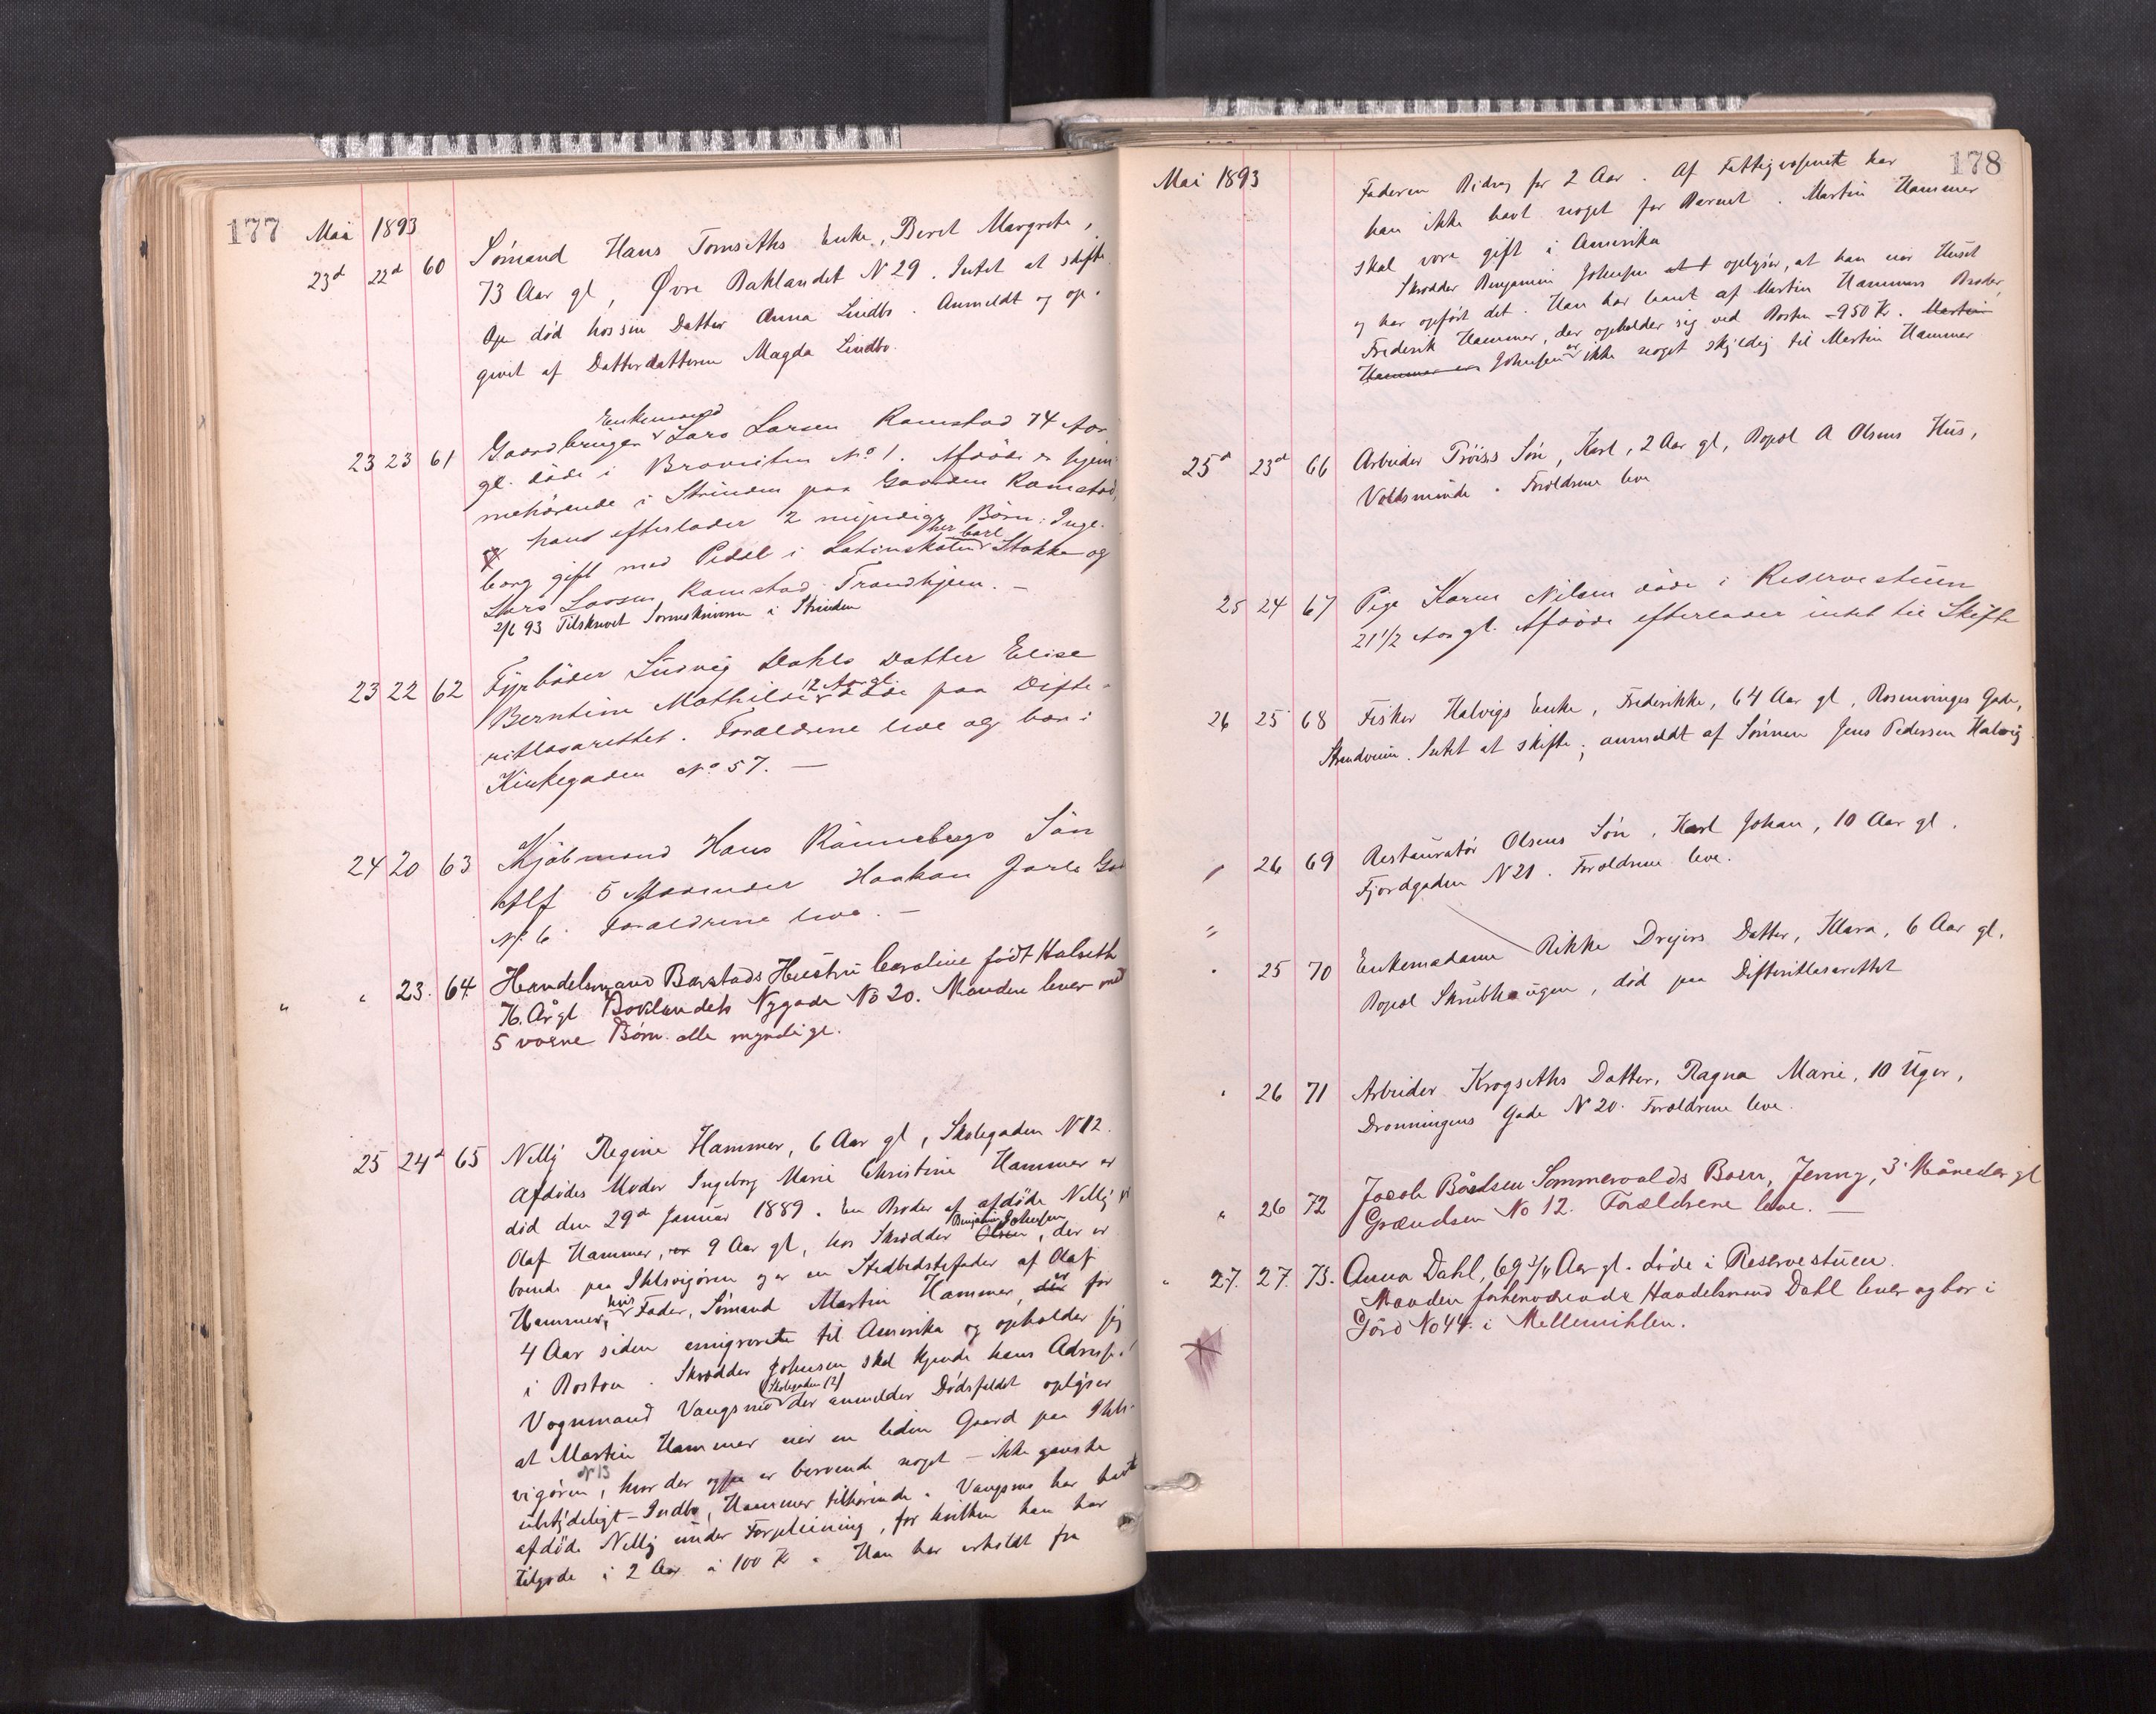 177 Mai 1893
23d 22d 60 Sømand Hans Tomseths Enke, Beret Margrete,
73 Aar gl, Øvre Baklandet N 29. Intet at skifte.
død hos sin Datter Anna Lindbo. Anmeldt og op-
givet af Datterdatteren Magda Lindbo.
Enkemand
23 23 61 Gaardbruger Lars Larsen Ramstad 74 Aar
gl. døde i Broveiten No 1. Afdøde er hjem-
mehørende i Strinden paa Gaarden Ramstad,
hans efterlader 2 myndige Børn: Inge-
her Carl
borg gift med Pedel i Latinskolen Stokke og
Lars Larsen Ramstad Trondhjem. —
2/6 93 Tilskrevet Sorenskriveren i Strinden
23 22 62 Fyrbøder Ludvig Dahls Datter Elise
12 Aar gl.
Berntine Mathilde døde paa Difte-
ritlasarettet. Forældrene leve og bor i
Kirkegaden No 57. —
24 20 63 Kjøbmand Hans Rønnebergs Søn
Alf 5 Maaneder Haakon Jarls Gad
No 6. Forældrene leve. —
" " 23. 64. Handelsmand Barstads Hustru Caroline født Halseth
76. År gl Baklandets Nygade No 20. Manden lever med
5 voxne Børn. alle myndige.
25 24d 65 Nelly Regine Hammer, 6 Aar gl, Skolegaden N 12.
Afdødes Moder Ingeborg Marie Christine Hammer er
død den 29d Januar 1889. En Broder af afdøde Nelly,
Benjamin Johnsen
Olaf Hammer, er 9 Aar gl, hos Skrædder Olsen, der er
boende paa Ihlsvigøren og er en Stedbedstefader af Olaf
hvis er
Hammer, Fader, Sømand Martin Hammer, der for
4 Aar siden emigrerede til Amerika og opholder sig
i Boston. Skrædder Johnsen skal kjende hans Adresse.
(Skolegaden 12)
Vognmand Vangsmo der anmelder Dødsfaldet oplyser
at Martin Hammer eier en liden Gaard paa Ihls-
N 13
vigøren, hvor der ogsaa er beroende noget – ikke ganske
ubetydeligt – Indbo, Hammer tilhørende. Vangsmo har havt
afdøde Nelly under Forpleining, for hvilken han har
tilgode i 2 Aar á 100 Kr. Han har erholdt fra
178
Mai 1893
Faderen Bidrag for 2 Aar. Af Fattigvæsenet har
han ikke havt noget for Barnet. Martin Hammer
skal være gift i Amerika
Skrædder Benjamin Johnsen at oplyser, at han eier Huset
og har opført det. Han har laant af Martin Hammers Broder,
Frederik Hammer, der opholder sig ved Boston – 950 Kr. Martin
er
Hammer er Johnsen ikke noget skyldig til Martin Hammer
25d 23d 66 Arbeider Trøiss Søn, Karl, 2 Aar gl, Bopæl A Olsens Hus,
Voldsminde. Forældrene leve
25 24 67 Pige Karen Nilsen døde i Reservestuen
21 1/2 Aar gl. Afdøde efterlader intet til Skifte
26 25 68 Fisker Halvigs Enke, Frederikke, 64 Aar gl, Rosenvinges Gade,
Strandveien. Intet at skifte; anmeldt af Sønnen Jens Pedersen Halvig.
" 26 69 Restauratør Olsens Søn, Karl Johan, 10 Aar gl.
Fjordgaden N 21. Forældrene leve.
" 25 70 Enkemadame Rikke Dreiers Datter, Klara, 6 Aar gl.
Bopæl Skrubhaugen, død paa Difteritlasarettet
" 26 71 Arbeider Krogseths Datter, Ragna Marie, 10 Uger,
Dronningens Gade N 20. Forældrene leve.
" 26 72 Jacob Bårdsen Sommervolds Barn, Jenny, 3 Måneder gl
Grændsen No 12. Forældrene leve. —
" 27. 27. 73. Anna Dahl, 69 3/4 Aar gl. døde i Reservestuen.
Manden forhenværende Handelsmand Dahl lever og bor i
Gård No 44. i Mellemihlen.